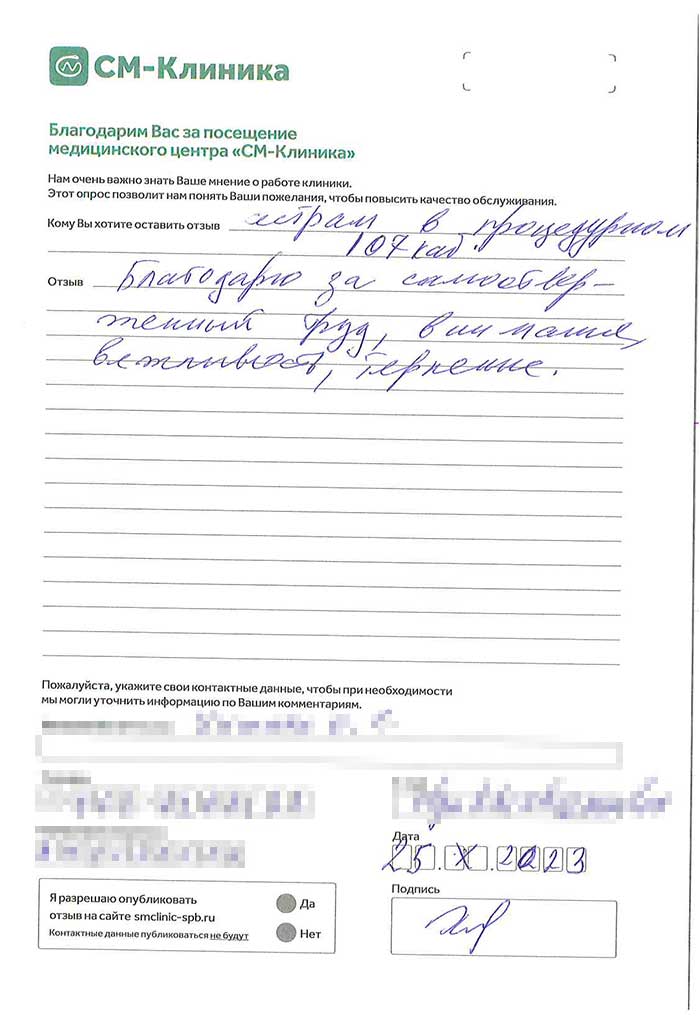 СМ-Клиника
Благодарим Вас за посещение
медицинского центра «СМ-Клиника»
Нам очень важно знать Ваше мнение о работе клиники.
Этот опрос позволит нам понять Ваши пожелания, чтобы повысить качество обслуживания.
Кому Вы хотите оставить отзыв сестрам в процедурном
107 каб.
Отзыв Благодарю за самоотвер-
женный труд, внимание,
вежливость, терпение.
Пожалуйста, укажите свои контактные данные, чтобы при необходимости
мы могли уточнить информацию по Вашим комментариям.
Дата
25.X.2023
Подпись
Я разрешаю опубликовать
отзыв на сайте smclinic-spb.ru
Контактные данные публиковаться не будут
Да
Нет